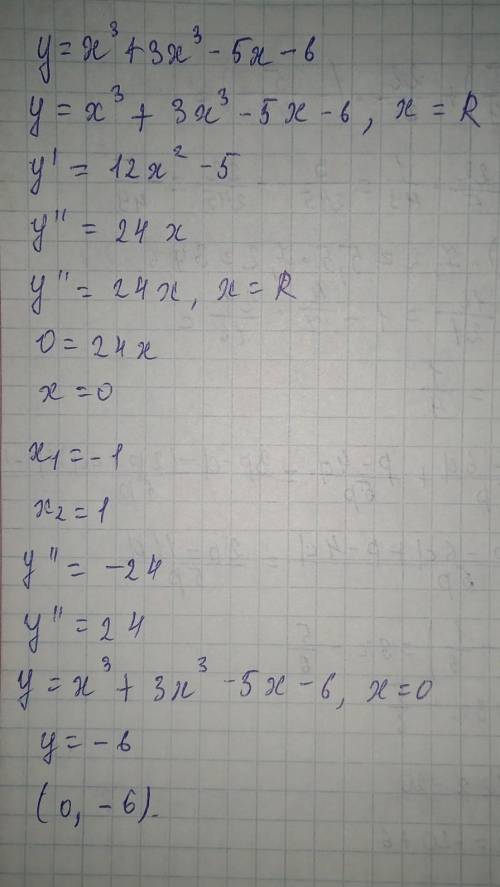 y = x³ + 3x³ - 5x - 6
y = x³ + 3x³ - 5x - 6, x = R
y' = 12x² - 5
y'' = 24x
y'' = 24x, x = R
0 = 24x
x = 0
x₁ = -1
x₂ = 1
y'' = -24
y'' = 24
y = x³ + 3x³ - 5x - 6, x = 0
y = -6
(0, -6).